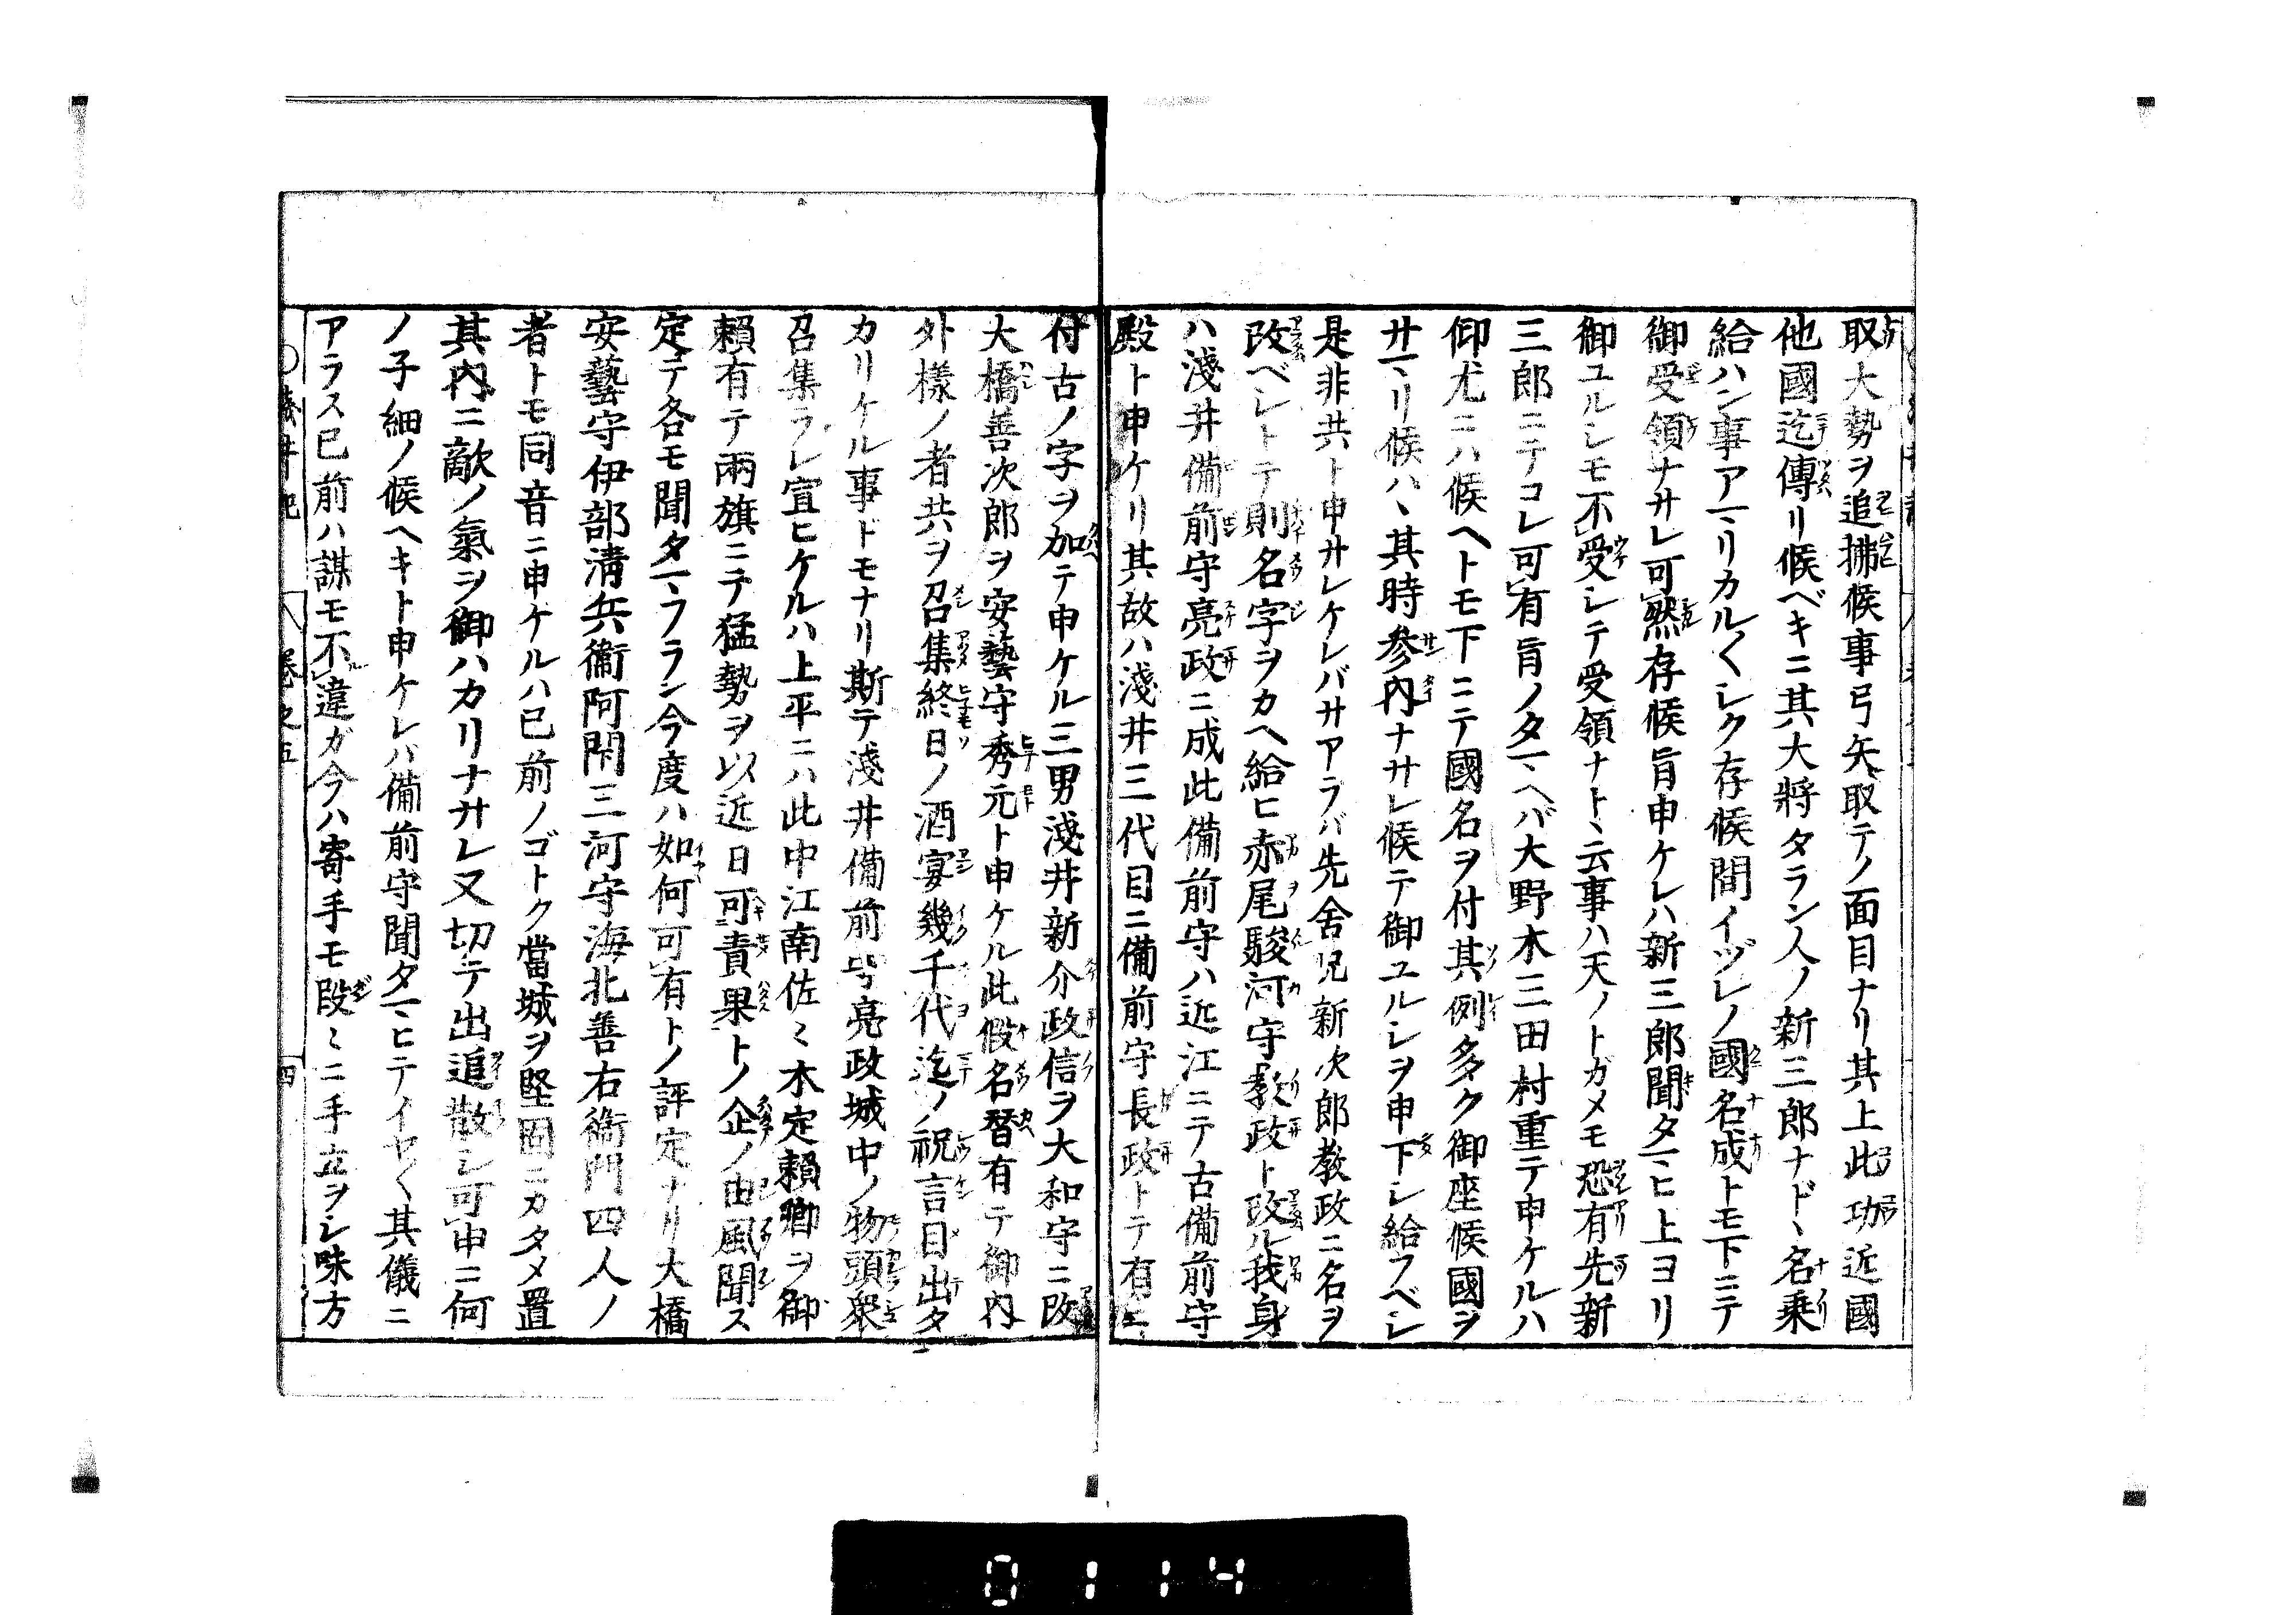 取大勢ヲ追拂候事弓矢取テノ面目ナリ其上此功近國
他國迄傳リ候ベキニ其大將タラン人ノ新三郎ナドヽ名乗
給ハン事アマリカル〱シク存候間イヅレノ國名成トモ下ニテ
御受領ナサレ可然存候旨申ケレハ新三郎聞タマヒ上ヨリ
御ユルシモ不受シテ受領ナトヽ云事ハ天ノトガメモ恐有先新
三郎ニテコレ可有旨ノタマヘバ大野木三田村重テ申ケルハ
仰尤ニハ候ヘトモ下ニテ國名ヲ付其例多ク御座候國ヲ
サマリ候ハヽ其時参内ナサレ候テ御ユルシヲ申下シ給フベシ
是非共ト申サレケレバサアラバ先舍兄新次郎教政ニ名ヲ
改ベシトテ則名字ヲカヘ給ヒ赤尾駿河守教政ト改ル我身
ハ淺井備前守亮政ニ成此備前守ハ近江ニテ古備前守
殿ト申ケリ其故ハ淺井三代目ニ備前守長政トテ有
付古ノ字ヲ加テ申ケル三男淺井新介政信ヲ大和守ニ改
大橋善次郎ヲ安藝守秀元ト申ケル此假名替有テ御内
外樣ノ者共ヲ召集終日ノ酒宴幾千代迄ノ祝言目出タ
カリケル事ドモナリ斯テ淺井備前守亮政城中ノ物頭衆
召集ラレ宣ヒケルハ上平ニハ此中江南佐〻木定賴卿ヲ御
賴有テ兩旗ニテ猛勢ヲ以近日可責果トノ企ノ由風聞ス
定テ各モ聞タマフラン今度ハ如何可有トノ評定ナリ大橋
安藝守伊部淸兵衞阿閉三河守海北善右衞門四人ノ
者トモ同音ニ申ケルハ已前ノゴトク當城ヲ堅固ニカタメ置
其内ニ敵ノ氣ヲ御ハカリナサレ又切テ出追散シ可申ニ何
ノ子細ノ候ヘキト申ケレバ備前守聞タマヒテイヤ〱其儀ニ
アラス已前ハ謀モ不違ガ今ハ寄手モ段〻ニ手立ヲシ味方
淺井記 卷之五 四
0114